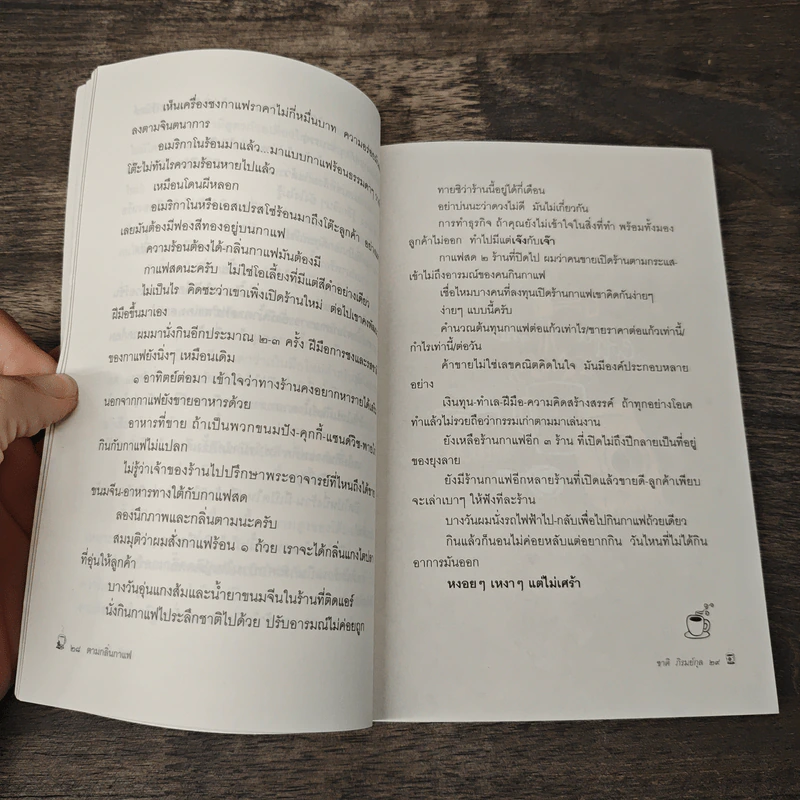 เห็นเครื่องชงกาแฟราคาไม่กี่หมื่นบาท ความอร่อย
ลงตามจินตนาการ
อเมริกาโนร้อนมาแล้ว...มาแบบกาแฟร้อนธรรมดาๆ
โต๊ะไม่ทันไรความร้อนหายไปแล้ว
เหมือนโดนผีหลอก
อเมริกาโนหรือเอสเปรสโซ่ร้อนมาถึงโต๊ะลูกค้า
เลยมันต้องมีฟองสีทองอยู่บนกาแฟ
ความร้อนต้องได้-กลิ่นกาแฟมันต้องมี
กาแฟสดนะครับ ไม่ใช่โอเลี้ยงที่มีแต่สีดำอย่างเดียว
ไม่เป็นไร คิดซะว่าเขาเพิ่งเปิดร้านใหม่ ต่อไปเขาคง
ฝีมือขึ้นมาเอง
ผมมานั่งกินอีกประมาณ ๒-๓ ครั้ง ฝีมือการชงและ
ของกาแฟยังนิ่งๆ เหมือนเดิม
๑ อาทิตย์ต่อมา เข้าใจว่าทางร้านคงอยากหารายได้
นอกจากกาแฟยังขายอาหารด้วย
อาหารที่ขาย ถ้าเป็นพวกขนมปัง-คุกกี้-แซนด์วิช-พาย
กินกับกาแฟไม่แปลก
ไม่รู้ว่าเจ้าของร้านไปปรึกษาพระอาจารย์ที่ไหนถึงได้ขาย
ขนมจีน-อาหารทางใต้กับกาแฟสด
ลองนึกภาพและกลิ่นตามนะครับ
สมมุติว่าผมสั่งกาแฟร้อน ๑ ถ้วย เราจะได้กลิ่นแกงไตปลา
ที่อุ่นให้ลูกค้า
บางวันอุ่นแกงส้มและน้ำยาขนมจีนในร้านที่ติดแอร์
นั่งกินกาแฟไประลึกชาติไปด้วย ปรับอารมณ์ไม่ค่อยถูก
๒๘ ตามกลิ่นกาแฟ
ทายซิว่าร้านนี้อยู่ได้กี่เดือน
อย่าบ่นนะว่าดวงไม่ดี มันไม่เกี่ยวกัน
การทำธุรกิจ ถ้าคุณยังไม่เข้าใจในสิ่งที่ทำ พร้อมทั้งมอง
ลูกค้าไม่ออก ทำไปมีแต่เจ๊งกับเจ๊า
กาแฟสด ๒ ร้านที่ปิดไป ผมว่าคนขายเปิดร้านตามกระแส-
เข้าไม่ถึงอารมณ์ของคนกินกาแฟ
เชื่อไหมบางคนที่ลงทุนเปิดร้านกาแฟเขาคิดกันง่ายๆ
ง่ายๆ แบบนี้ครับ
คำนวณต้นทุนกาแฟต่อแก้วเท่าไร/ขายราคาต่อแก้วเท่านี้/
กำไรเท่านี้/ต่อวัน
ค้าขายไม่ใช่เลขคณิตคิดในใจ มันมีองค์ประกอบหลาย
อย่าง
เงินทุน-ทำเล-ฝีมือ-ความคิดสร้างสรรค์ ถ้าทุกอย่างโอเค
ทำแล้วไม่รวยถือว่ากรรมเก่าตามมาเล่นงาน
ยังเหลือร้านกาแฟอีก ๓ ร้าน ที่เปิดไม่ถึงปีกลายเป็นที่อยู่
ของยุงลาย
ยังมีร้านกาแฟอีกหลายร้านที่เปิดแล้วขายดี-ลูกค้าเพียบ
จะเล่าเบาๆ ให้ฟังทีละร้าน
บางวันผมนั่งรถไฟฟ้าไป-กลับเพื่อไปกินกาแฟถ้วยเดียว
กินแล้วก็นอนไม่ค่อยหลับแต่อยากกิน วันไหนที่ไม่ได้กิน
อาการมันออก
หงอยๆ เหงาๆ แต่ไม่เศร้า
ชาติ ภิรมย์กุล ๒๙